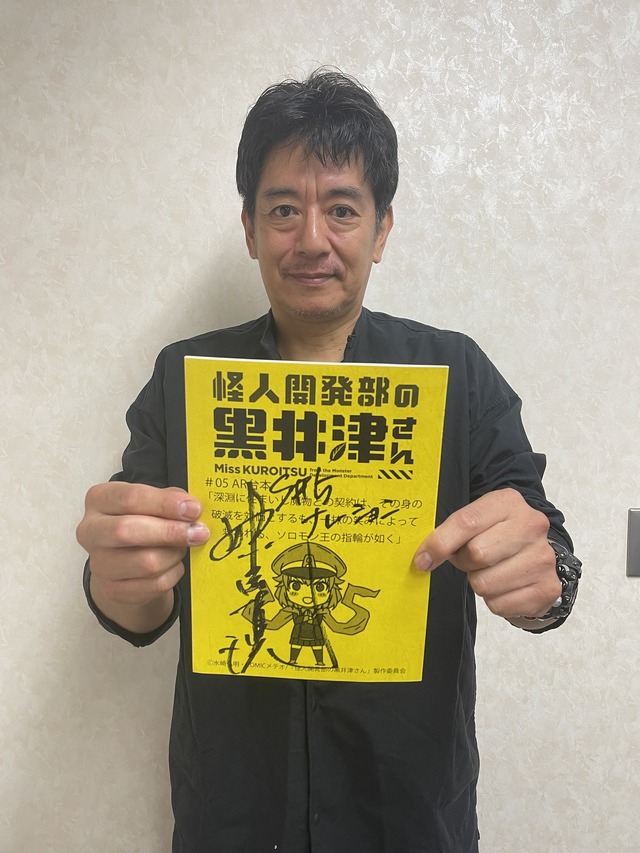 怪人開発部の
黒井津さん
Miss KUROITSU from the Monster Development Department
#05 AR台本
「深淵に住まいし魔物との契約は、その身の
破滅を対価とするも
によって
、ソロモン王の指輪が如く」
#5
ナレーション
©水崎弘明・COMICメテオ/「怪人開発部の黒井津さん」製作委員会